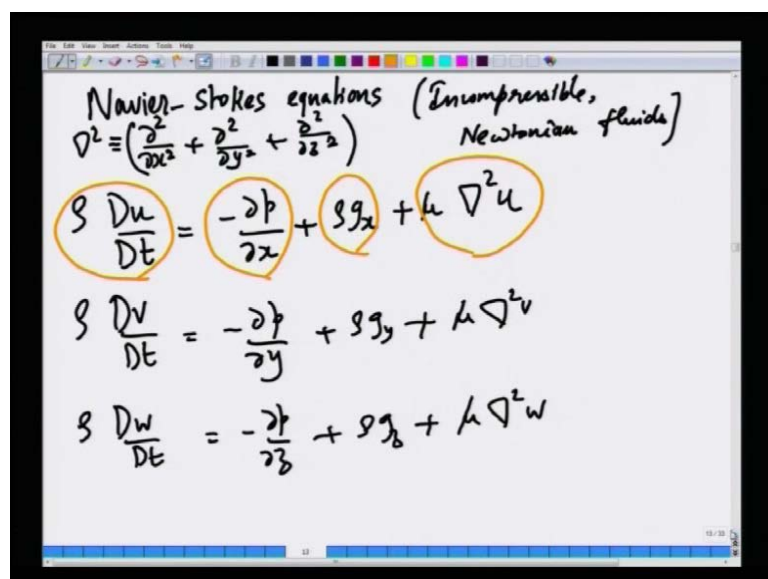 File Edit View Insert Actions Tools Help
Navier-Stokes equations (Incompressible,
Newtonian fluids)
∇² ≡ (∂²/∂x² + ∂²/∂y² + ∂²/∂z²)
ρ Du/Dt = -∂p/∂x + ρg_x + μ ∇²u
ρ Dv/Dt = -∂p/∂y + ρg_y + μ ∇²v
ρ Dw/Dt = -∂p/∂z + ρg_z + μ ∇²w
13/33
13